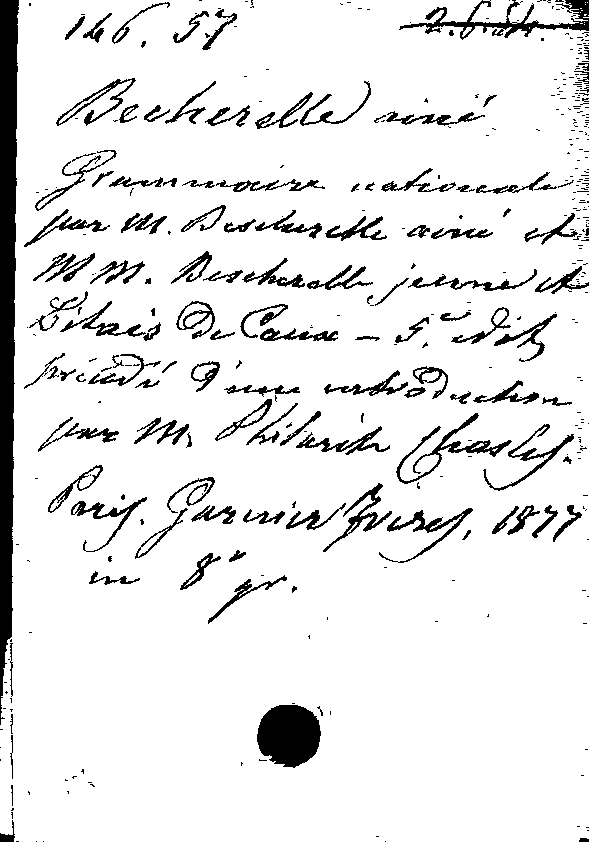 146. 57
Becherelle ainé
Grammaire nationale
par M. Bescherelle ainé et
MM. Bescherelle jeune et
Litais De Caux - 5.e edit
précédé d'une introduction
par M. Philarète Chasles.
Paris. Garnier Frères, 1877
in 8° gr.